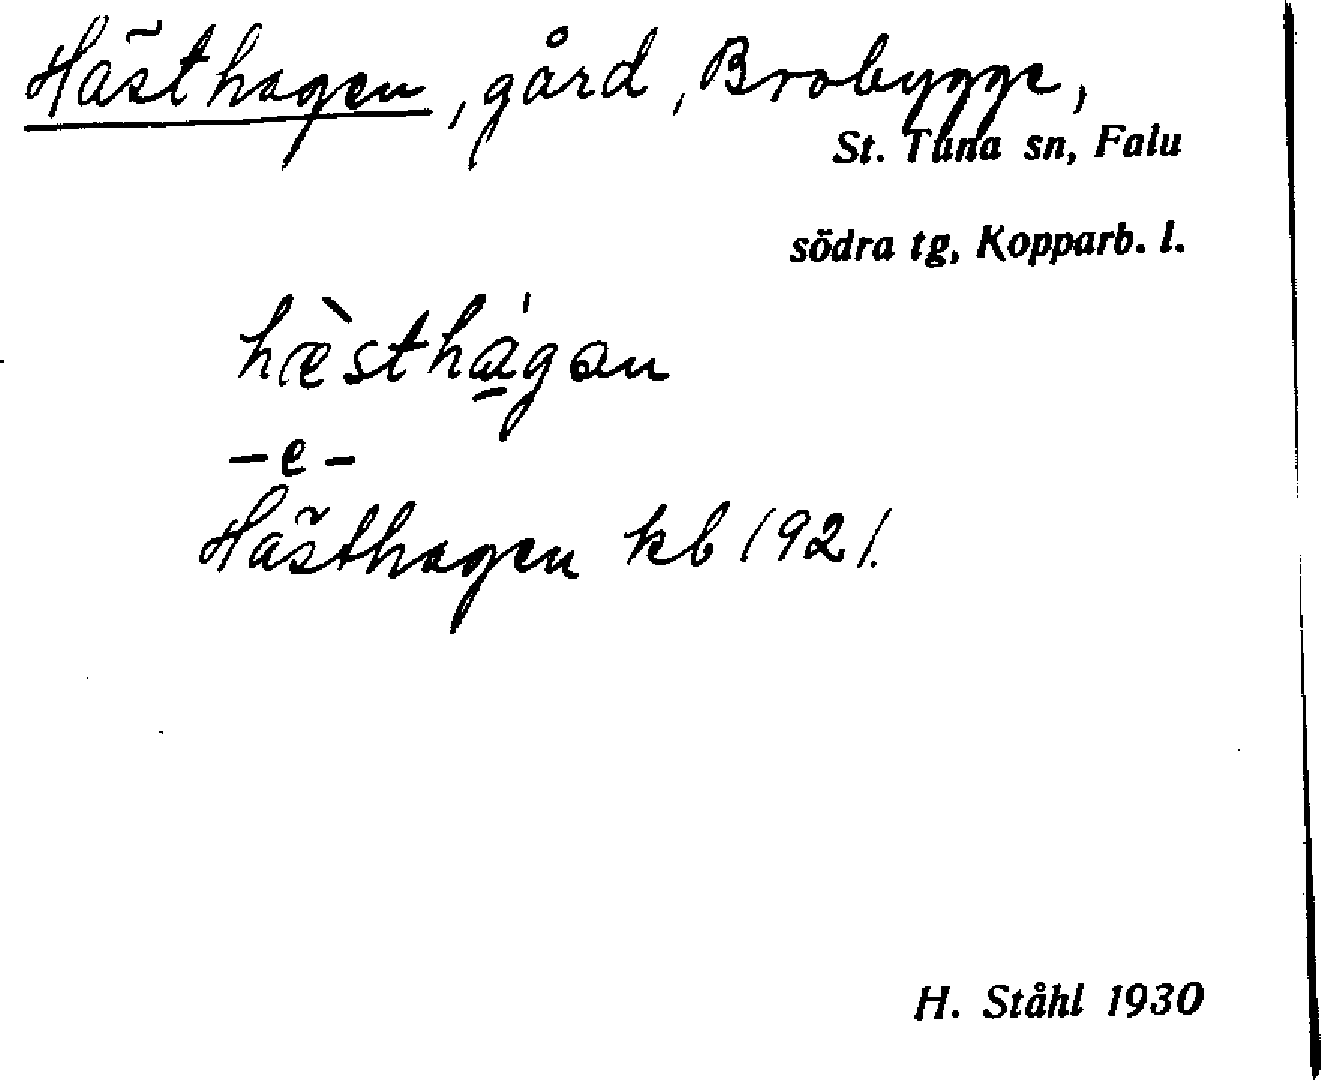 Hästhagen, gård, Brobygge,
St. Tuna sn, Falu
södra tg, Kopparb. l.
hæ̀sthá̱gən
–e–
Hästhagen kb 1921.
H. Ståhl 1930